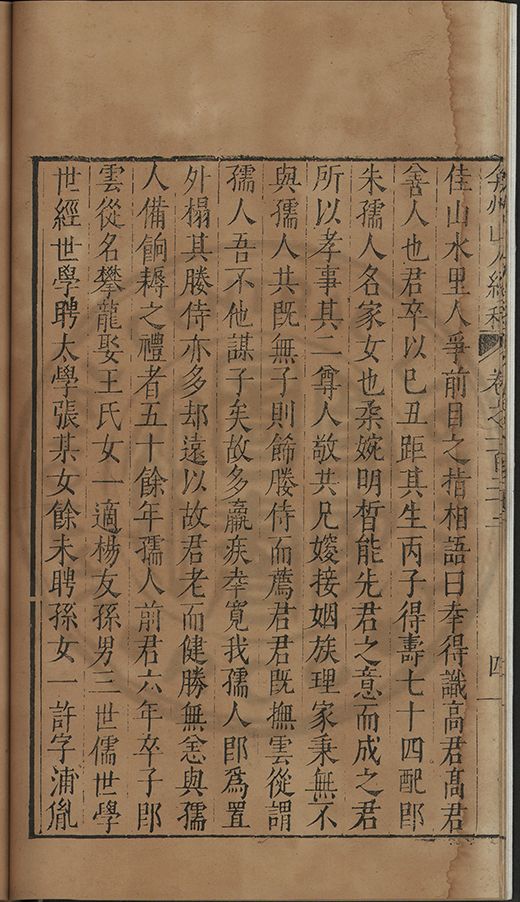 佳山水里人爭前目之指相語曰幸得識高君髙君
善人也君卒以巳丑距其生丙子得壽七十四配即
朱孺人名家女也柔婉明晳能先君之意而成之君
所以孝事其二尊人敬共兄嫂接姻族理家秉無不
與孺人共既無子則飾媵侍而薦君君既撫雲從謂
孺人吾不他謀子矣故多羸疾幸寛我孺人即爲置
外榻其媵侍亦多却遠以故君老而健勝無恙與孺
人備餉耨之禮者五十餘年孺人前君六年卒子即
雲從名攀龍娶王氏女一適楊友孫男三世儒世學
世經世學聘太學張某女餘未聘孫女一許字浦胤
卷之一百二十
四